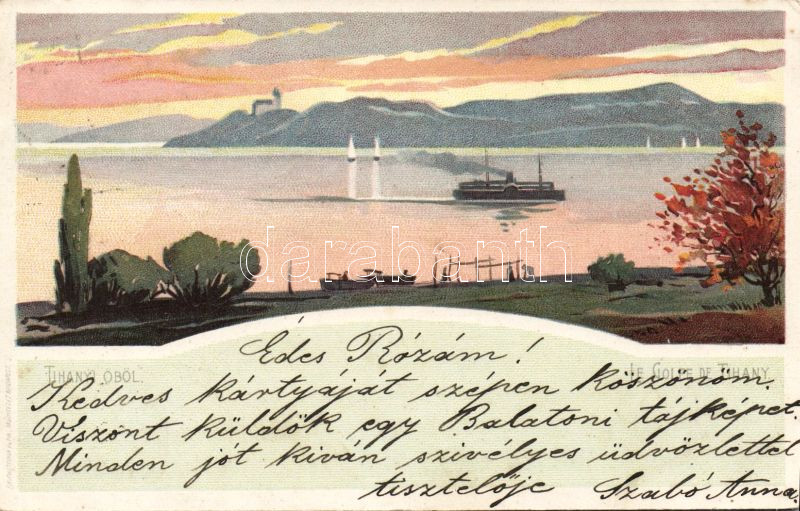 darabanth
Édes Rózám!
TIHANYI ÖBÖL. LE GOLFE DE TIHANY
Kedves kártyáját szépen köszönöm.
Viszont küldök egy Balatoni tájképet.
Minden jót kiván szivélyes üdvözlettel
tisztelője Szabó Anna.